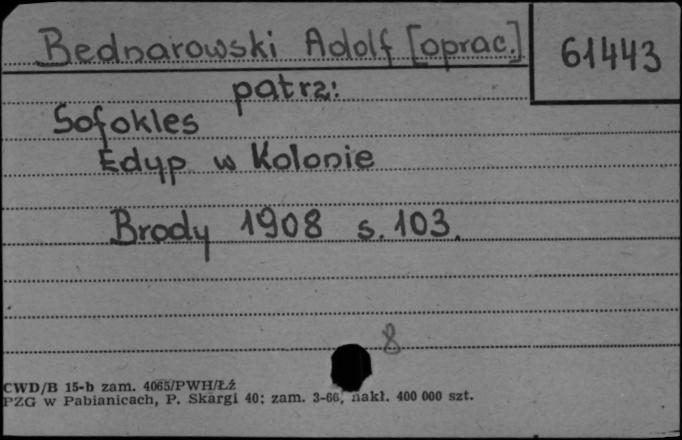 Bednarowski Adolf [oprac.]
61443
patrz:
Sofokles
Edyp w Kolonie
Brody 1908 s. 103.
8
CWD/B 15-b zam. 4065/PWH/Łź
PZG w Pabianicach, P. Skargi 40; zam. 3-66, nakł. 400 000 szt.